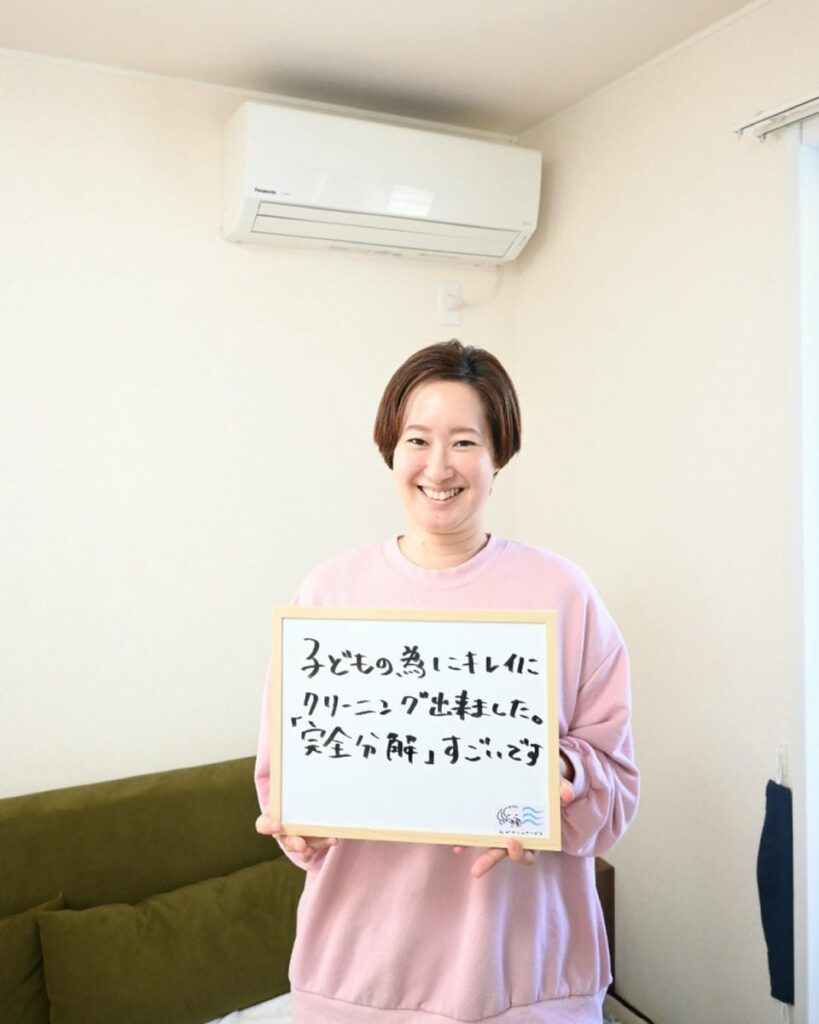 Panasonic
子どもの為にキレイに
クリーニング出来ました。
「完全分解」すごいです